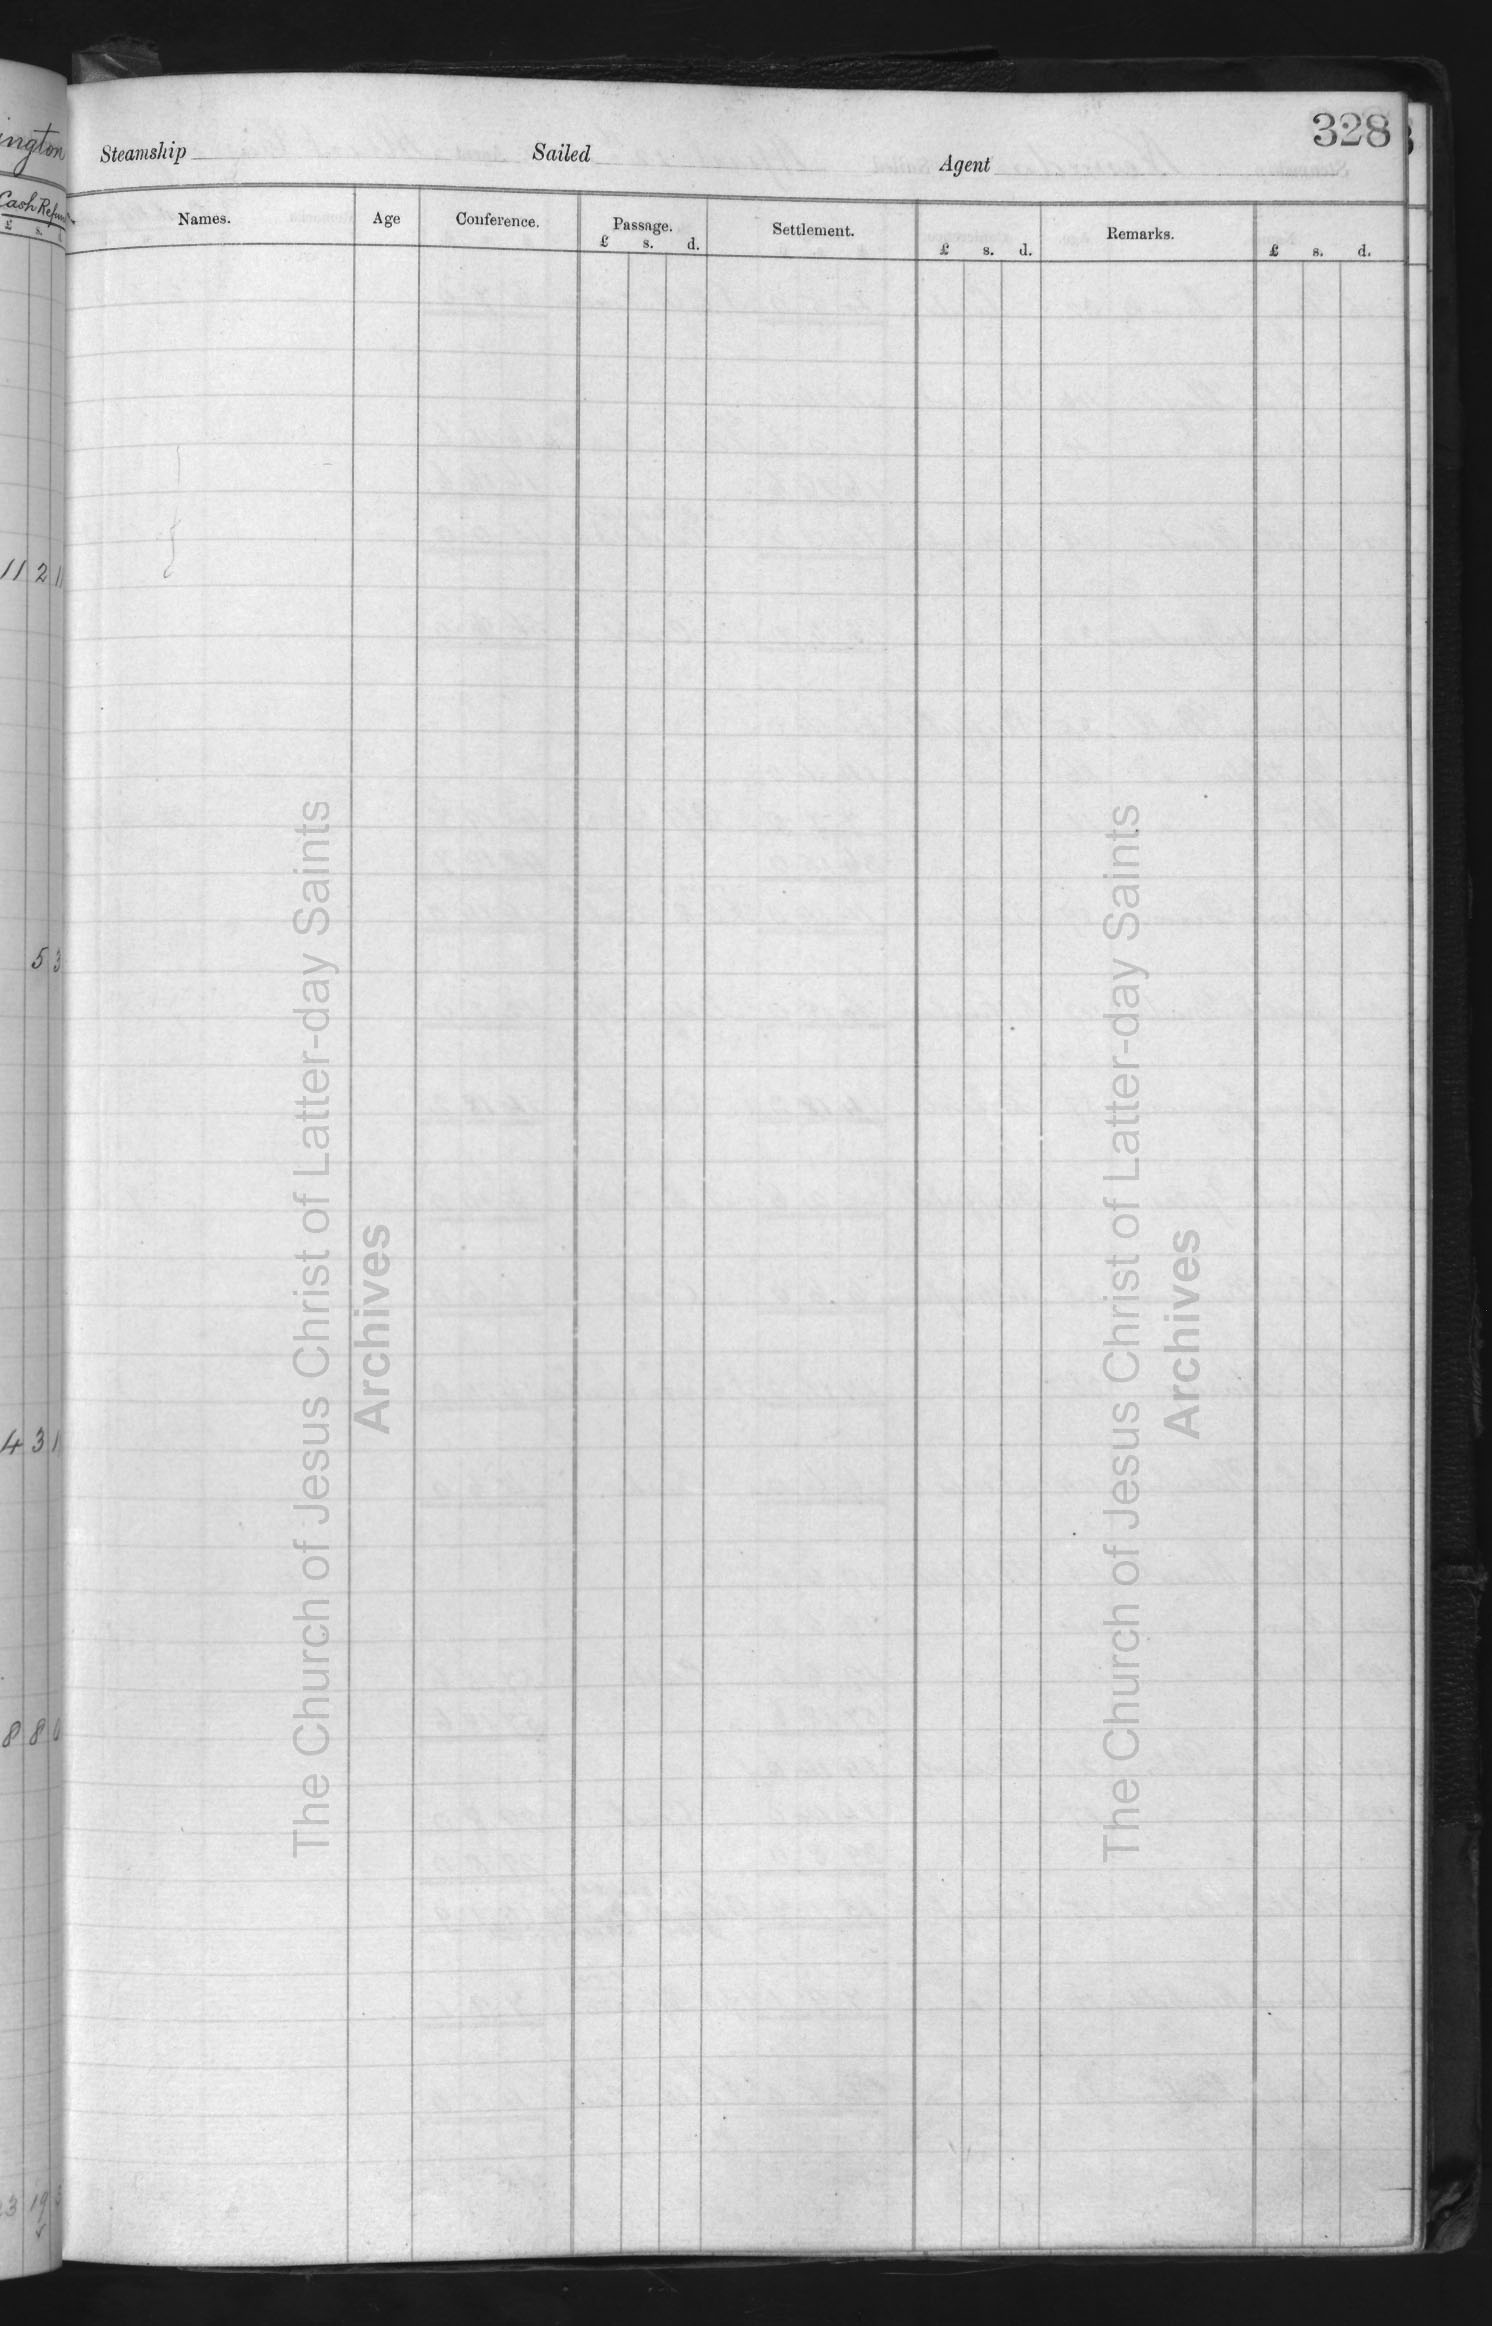 328
Steamship Sailed Agent
Names. Age Conference. Passage. Settlement. Remarks.
£ s. d. £ s. d. £ s. d.
ington
Cash Refund
£ s.
11 2 1
5 3
4 3 1
8 8 0
3 19 3
The Church of Jesus Christ of Latter-day Saints
Archives
The Church of Jesus Christ of Latter-day Saints
Archives